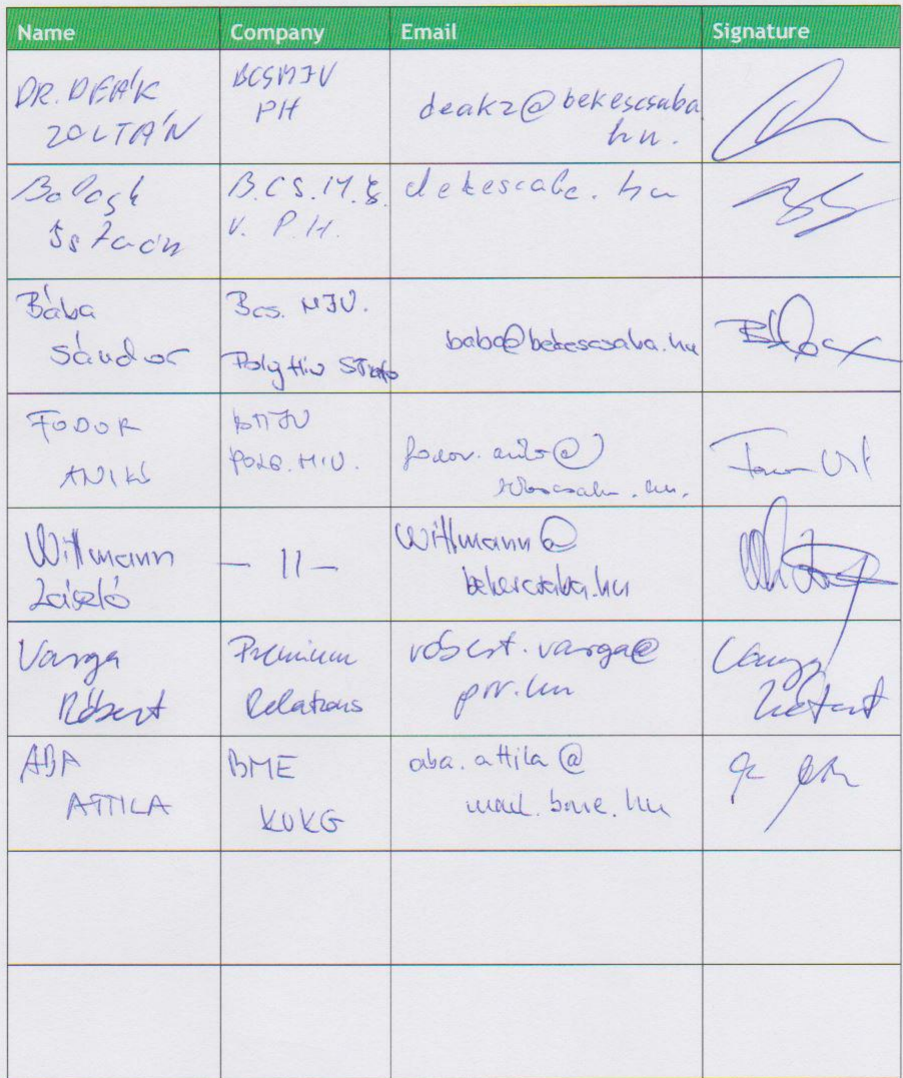 Name Company Email Signature
DR. DEÁK
ZOLTÁN
BCSMJV
PH
deakz@bekescsaba
hu.
Balogh
István
B.CS.M.
V. P.H.
Bába
Sándor
Bcs. MJV.
babo@bekescsaba.hu
FODOR
ANIKÓ
BMJV
POLG. HIV.
Wittmann
László
— 11 —
Wittmann@
bekescsaba.hu
Varga
Róbert
Premium
Relations
róbert.varga@
prr.hu
Varga
Róbert
ABA
ATTILA
BME
KUKG
aba.attila@
mail.bme.hu